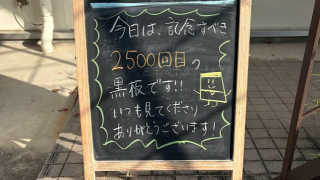 今日は、記念すべき
2500回目の
黒板です!!
いつも見てくださり
ありがとうございます!